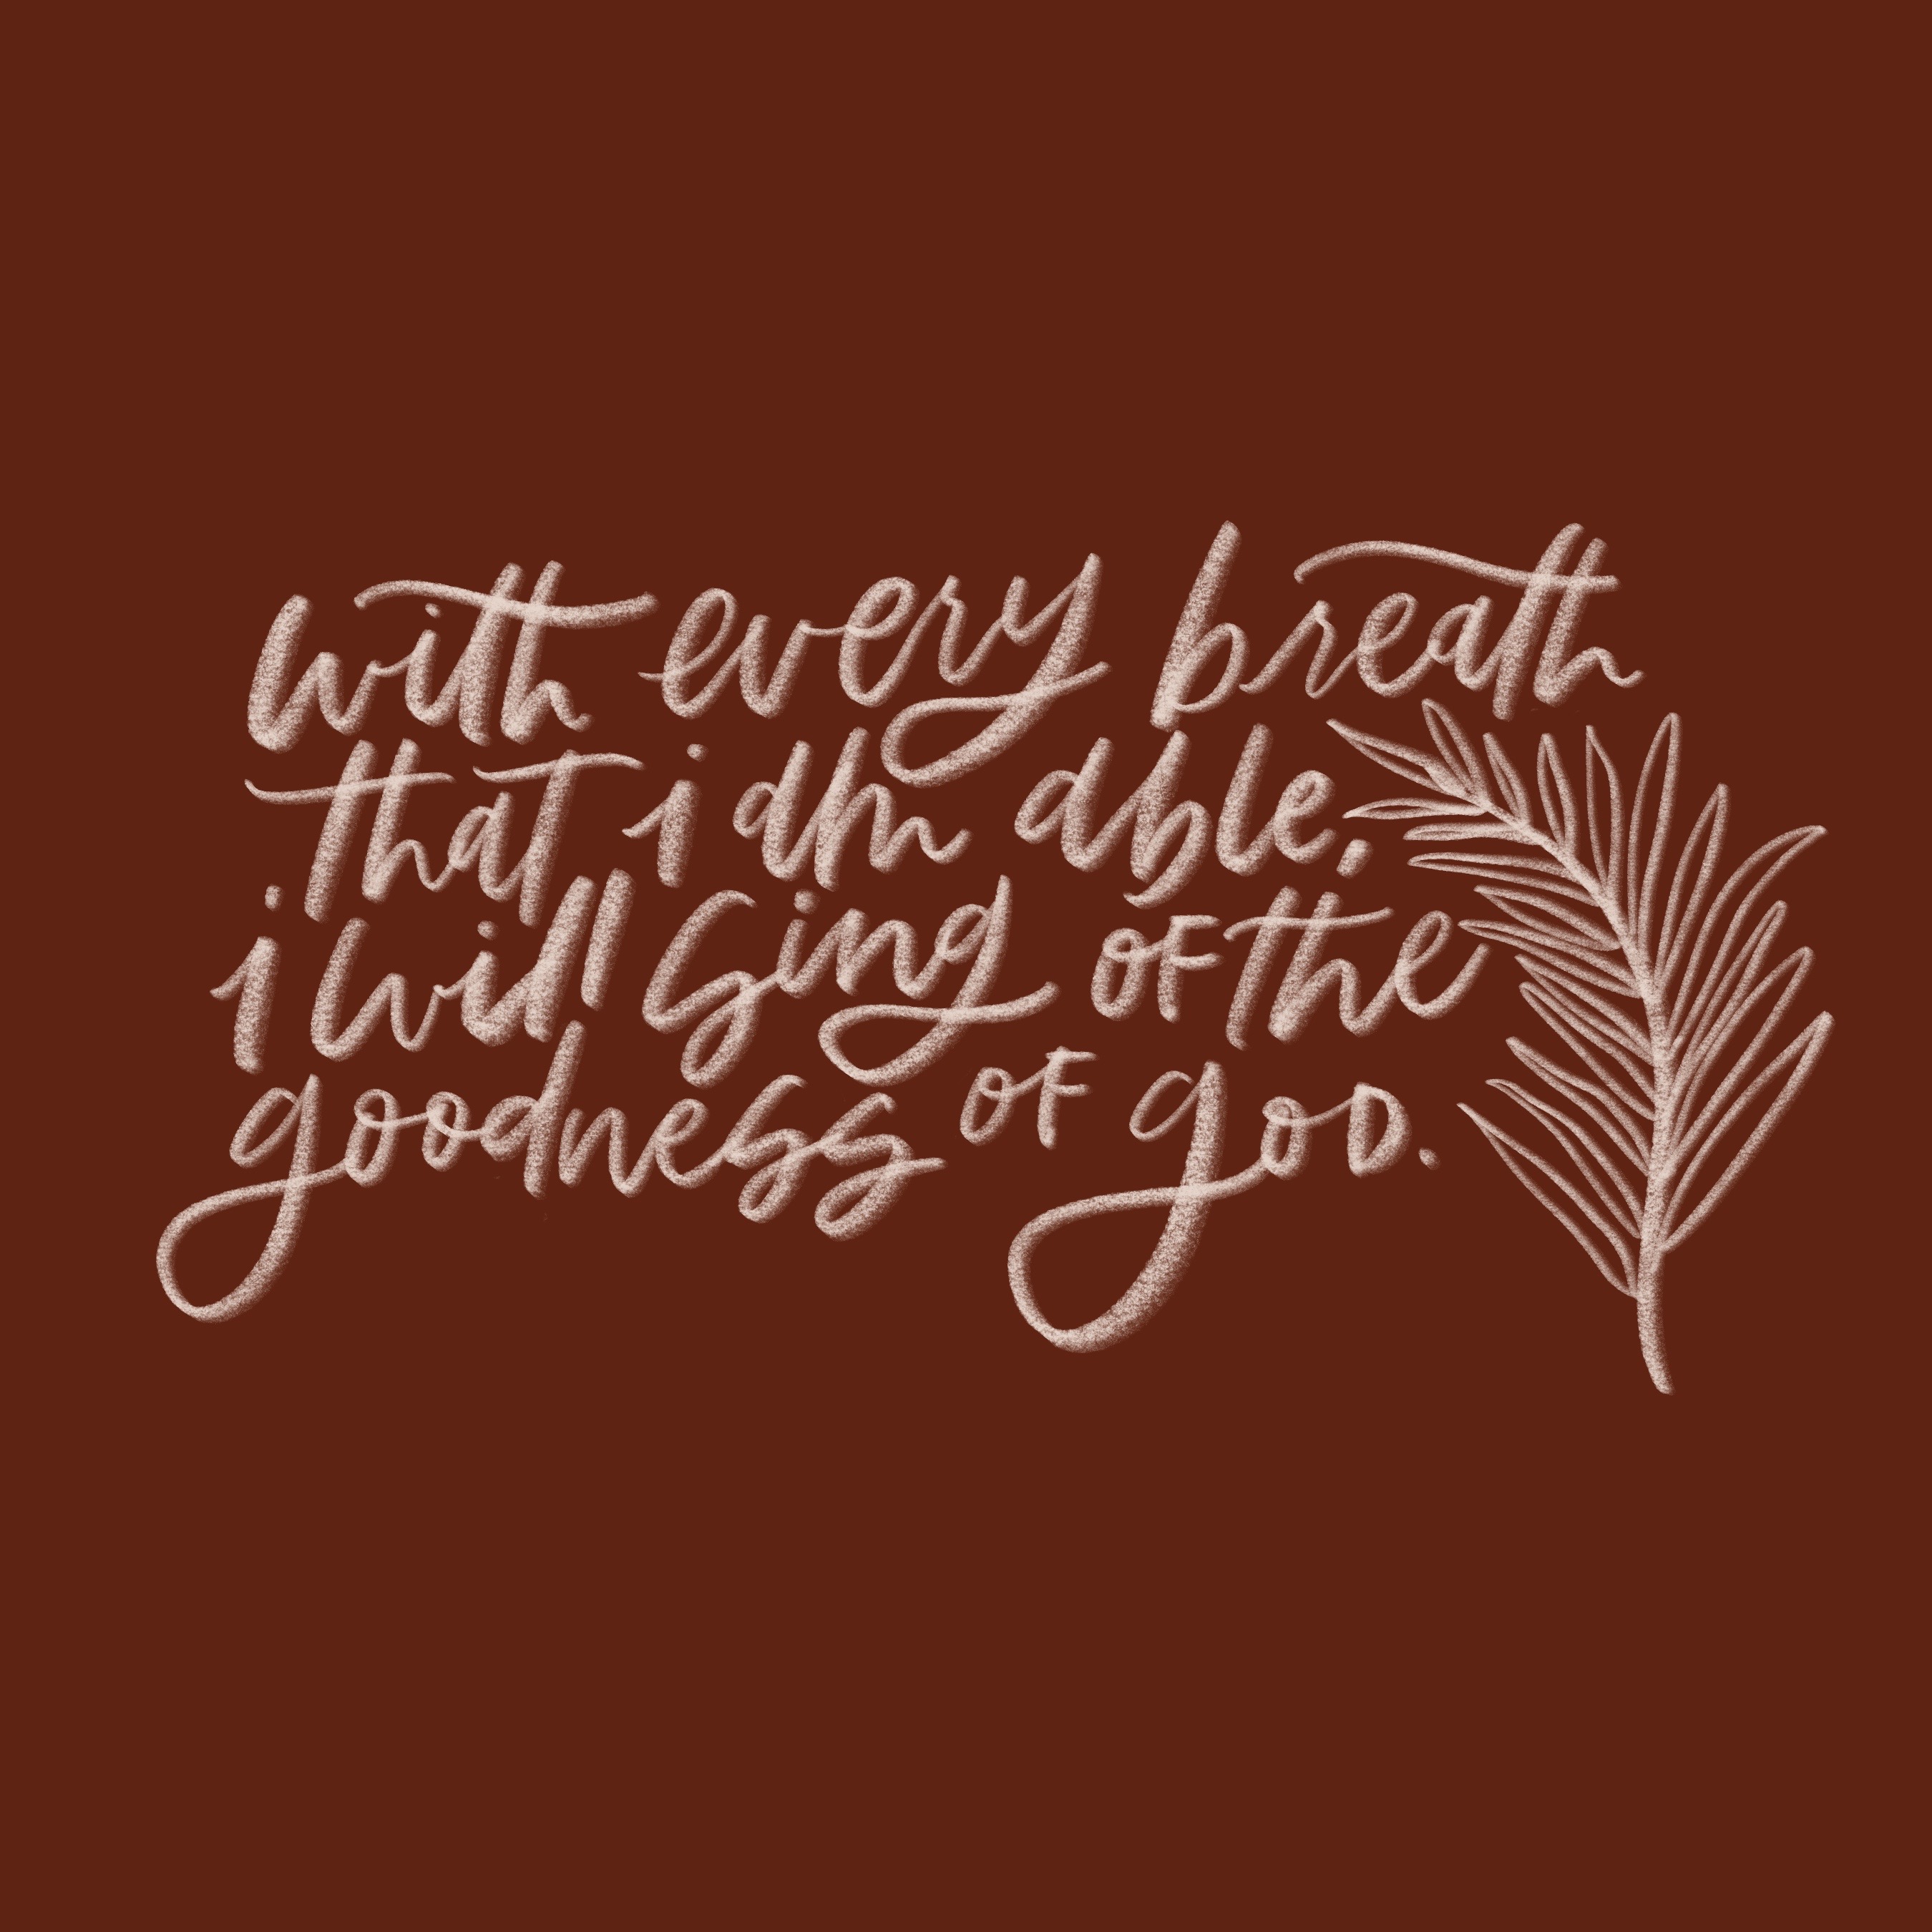 with every breath
that i am able,
i will sing of the
goodness of god.